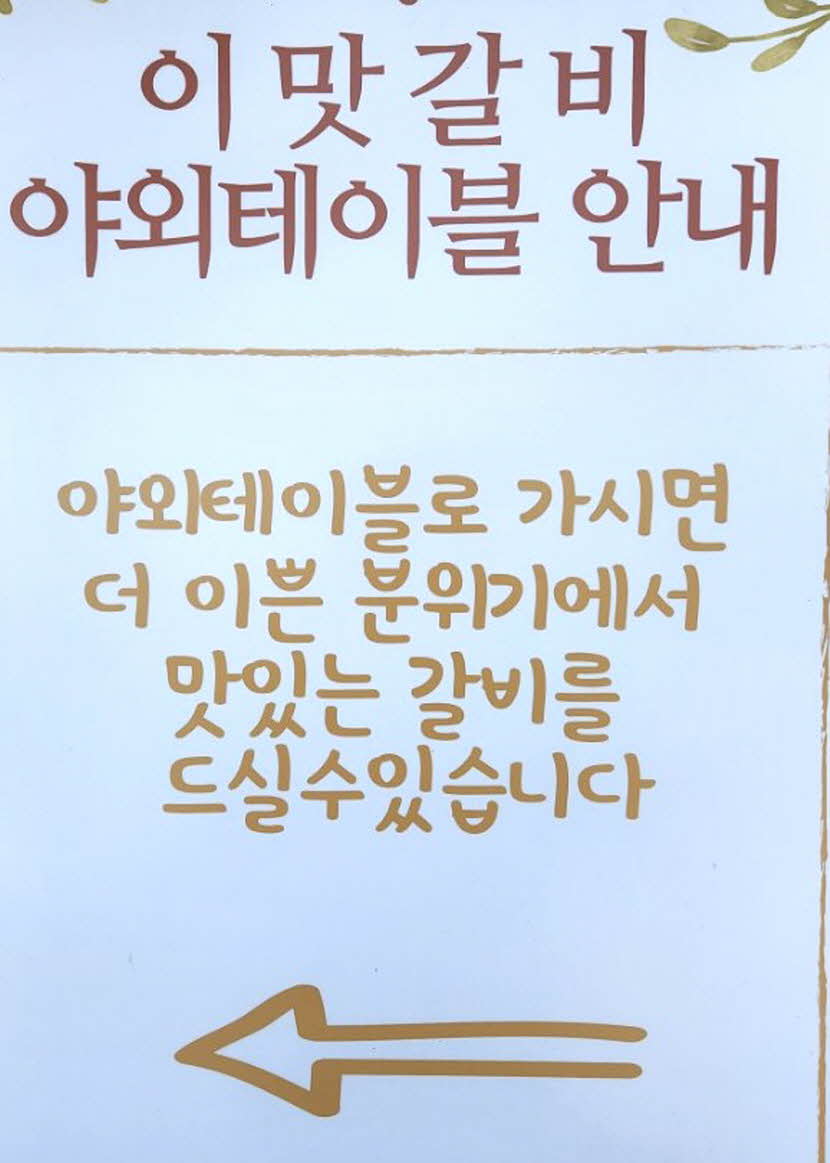 이 맛 갈 비
야외테이블 안내
야외테이블로 가시면
더 이쁜 분위기에서
맛있는 갈비를
드실수있습니다